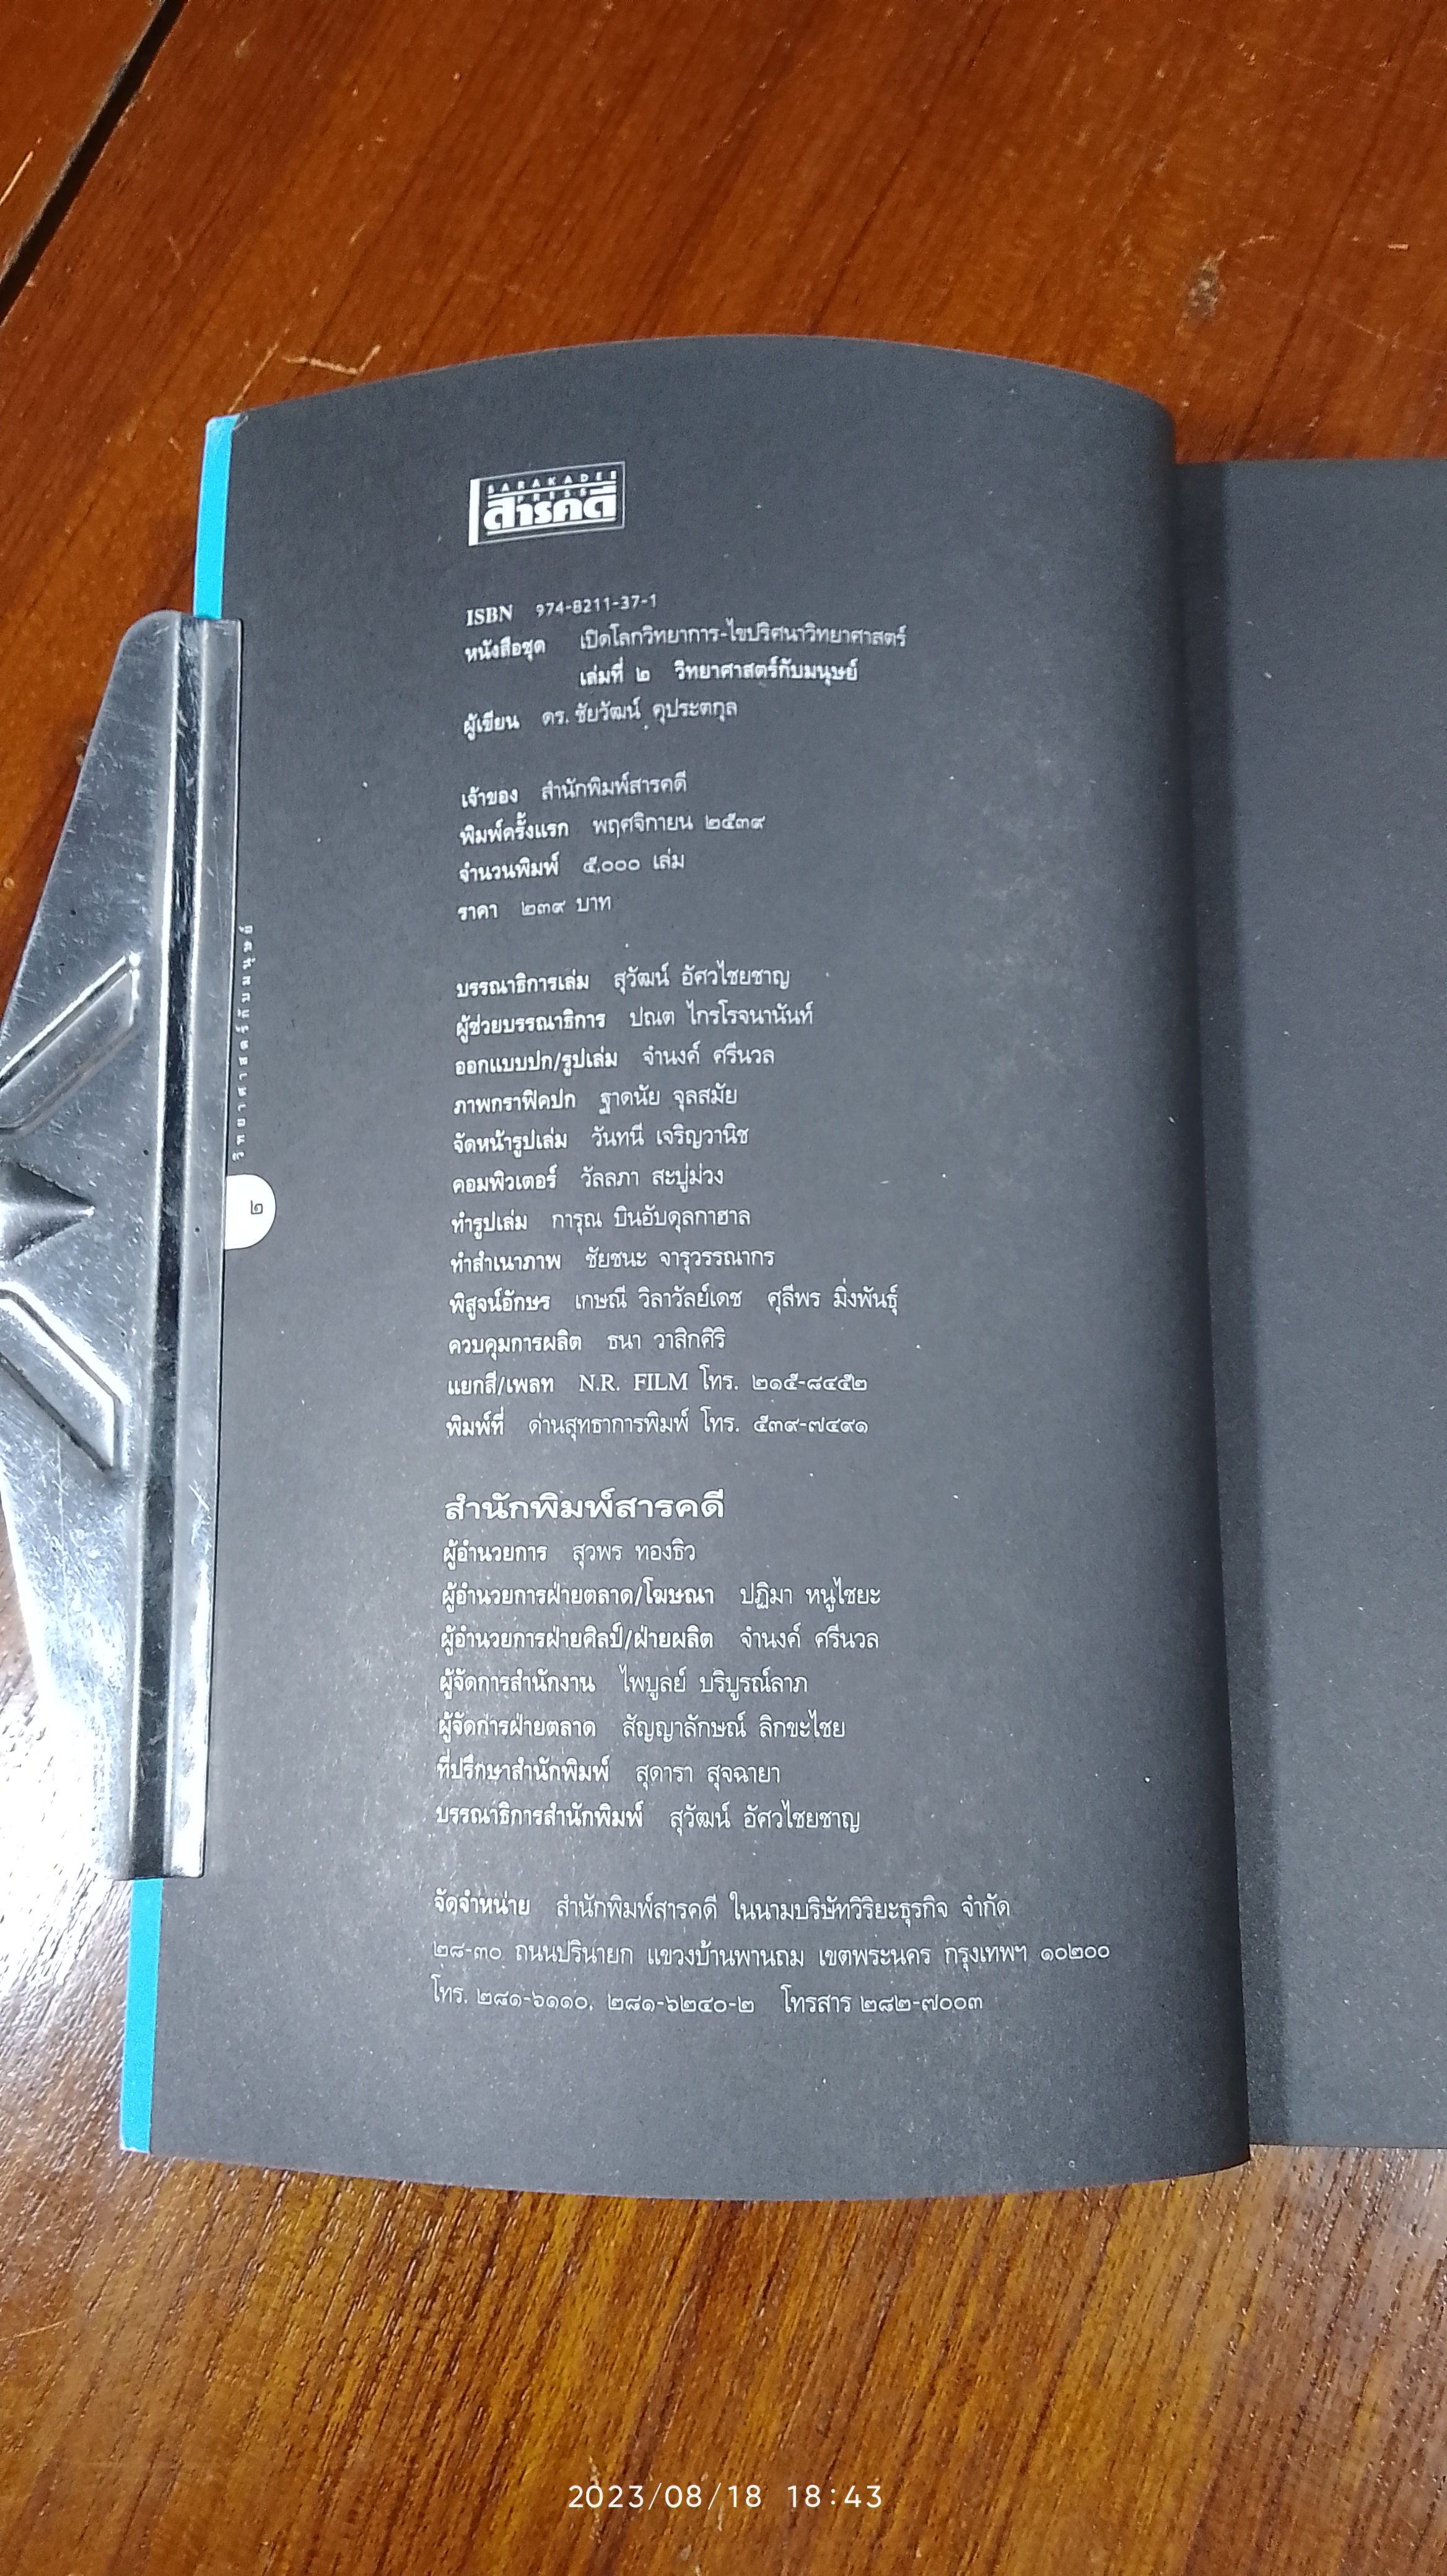 SARAKADEE
PRESS
สารคดี
ISBN 974-8211-37-1
หนังสือชุด เปิดโลกวิทยาการ-ไขปริศนาวิทยาศาสตร์
เล่มที่ ๒ วิทยาศาสตร์กับมนุษย์
ผู้เขียน ดร. ชัยวัฒน์ คุประตกุล
เจ้าของ สำนักพิมพ์สารคดี
พิมพ์ครั้งแรก พฤศจิกายน ๒๕๓๙
จำนวนพิมพ์ ๕,๐๐๐ เล่ม
ราคา ๒๓๙ บาท
บรรณาธิการเล่ม สุวัฒน์ อัศวไชยชาญ
ผู้ช่วยบรรณาธิการ ปณต ไกรโรจนานันท์
ออกแบบปก/รูปเล่ม จำนงค์ ศรีนวล
ภาพกราฟิคปก ฐาดนัย จุลสมัย
จัดหน้ารูปเล่ม วันทนี เจริญวานิช
คอมพิวเตอร์ วัลลภา สะบู่ม่วง
ทำรูปเล่ม การุณ บินอับดุลกาฮาล
ทำสำเนาภาพ ชัยชนะ จารุวรรณากร
พิสูจน์อักษร เกษณี วิลาวัลย์เดช ศุลีพร มิ่งพันธุ์
ควบคุมการผลิต ธนา วาสิกศิริ
แยกสี/เพลท N.R. FILM โทร. ๒๑๕-๘๔๔๒
พิมพ์ที่ ด่านสุทธาการพิมพ์ โทร. ๕๓๙-๗๔๙๑
สำนักพิมพ์สารคดี
ผู้อำนวยการ สุวพร ทองธิว
ผู้อำนวยการฝ่ายตลาด/โฆษณา ปฏิมา หนูไชยะ
ผู้อำนวยการฝ่ายศิลป์/ฝ่ายผลิต จำนงค์ ศรีนวล
ผู้จัดการสำนักงาน ไพบูลย์ บริบูรณ์ลาภ
ผู้จัดการฝ่ายตลาด สัญญาลักษณ์ ลิกขะไชย
ที่ปรึกษาสำนักพิมพ์ สุดารา สุจฉายา
บรรณาธิการสำนักพิมพ์ สุวัฒน์ อัศวไชยชาญ
จัดจำหน่าย สำนักพิมพ์สารคดี ในนามบริษัทวิริยะธุรกิจ จำกัด
๒๘-๓๐ ถนนปรินายก แขวงบ้านพานถม เขตพระนคร กรุงเทพฯ ๑๐๒๐๐
โทร. ๒๘๑-๖๑๑๐, ๒๘๑-๖๒๔๐-๒ โทรสาร ๒๘๒-๗๐๐๓
วิทยาศาสตร์กับมนุษย์
๒
2023/08/18 18:43